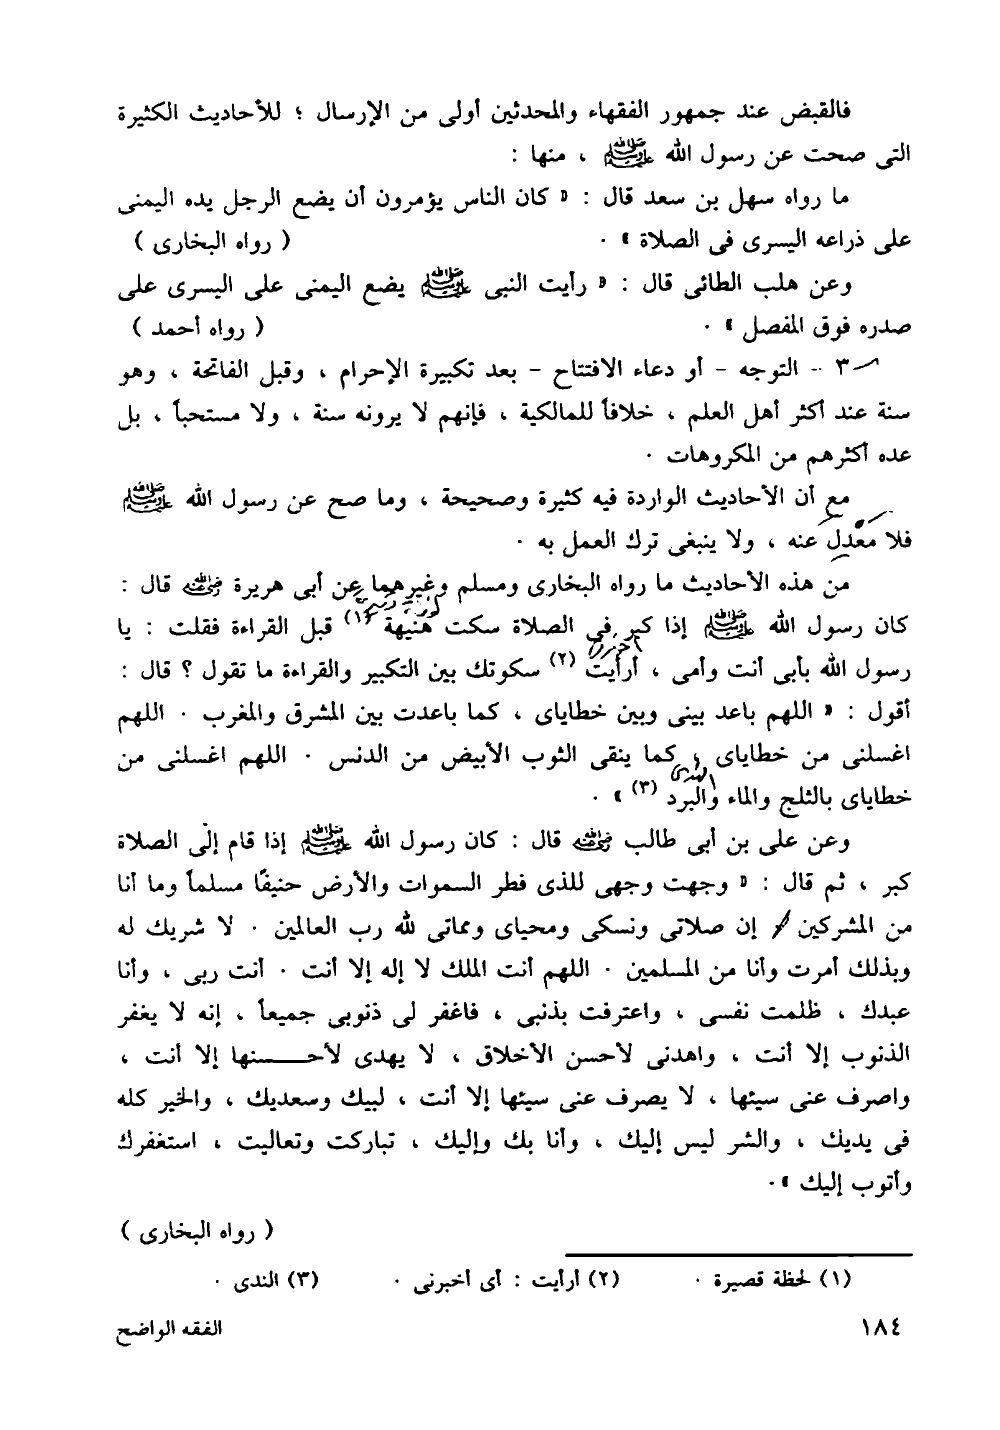 فالقبض عند جمهور الفقهاء والمحدثين أولى من الإرسال ؛ للأحاديث الكثيرة
التى صحت عن رسول الله ﷺ ، منها :
ما رواه سهل بن سعد قال : « كان الناس يؤمرون أن يضع الرجل يده اليمنى
على ذراعه اليسرى فى الصلاة » . ( رواه البخارى )
وعن هلب الطائى قال : « رأيت النبى ﷺ يضع اليمنى على اليسرى على
صدره فوق المفصل » . ( رواه أحمد )
٣ - التوجه - أو دعاء الافتتاح - بعد تكبيرة الإحرام ، وقبل الفاتحة ، وهو
سنة عند أكثر أهل العلم ، خلافاً للمالكية ، فإنهم لا يرونه سنة ، ولا مستحباً ، بل
عده أكثرهم من المكروهات .
مع أن الأحاديث الواردة فيه كثيرة وصحيحة ، وما صح عن رسول الله ﷺ
فلا مَعْدِلَ عنه ، ولا ينبغى ترك العمل به .
من هذه الأحاديث ما رواه البخارى ومسلم وغيرهما عن أبى هريرة رضي الله عنه قال :
كان رسول الله ﷺ إذا كبر فى الصلاة سكت هنيهة (١) قبل القراءة فقلت : يا
رسول الله بأبى أنت وأمى ، أرأيت (٢) سكوتك بين التكبير والقراءة ما تقول ؟ قال :
أقول : « اللهم باعد بينى وبين خطاياى ، كما باعدت بين المشرق والمغرب . اللهم
اغسلنى من خطاياى ، كما ينقى الثوب الأبيض من الدنس . اللهم اغسلنى من
خطاياى بالثلج والماء والبرد (٣) » .
وعن على بن أبى طالب رضي الله عنه قال : كان رسول الله ﷺ إذا قام إلى الصلاة
كبر ، ثم قال : « وجهت وجهى للذى فطر السموات والأرض حنيفًا مسلماً وما أنا
من المشركين / إن صلاتى ونسكى ومحياى ومماتى لله رب العالمين . لا شريك له
وبذلك أمرت وأنا من المسلمين . اللهم أنت الملك لا إله إلا أنت . أنت ربى ، وأنا
عبدك ، ظلمت نفسى ، واعترفت بذنبى ، فاغفر لى ذنوبى جميعاً ، إنه لا يغفر
الذنوب إلا أنت ، واهدنى لأحسن الأخلاق ، لا يهدى لأحـــــنها إلا أنت ،
واصرف عنى سيئها ، لا يصرف عنى سيئها إلا أنت ، لبيك وسعديك ، والخير كله
فى يديك ، والشر ليس إليك ، وأنا بك وإليك ، تباركت وتعاليت ، استغفرك
وأتوب إليك » .
( رواه البخارى )
(١) لحظة قصيرة . (٢) أرأيت : أى أخبرنى . (٣) الندى .
١٨٤ الفقه الواضح